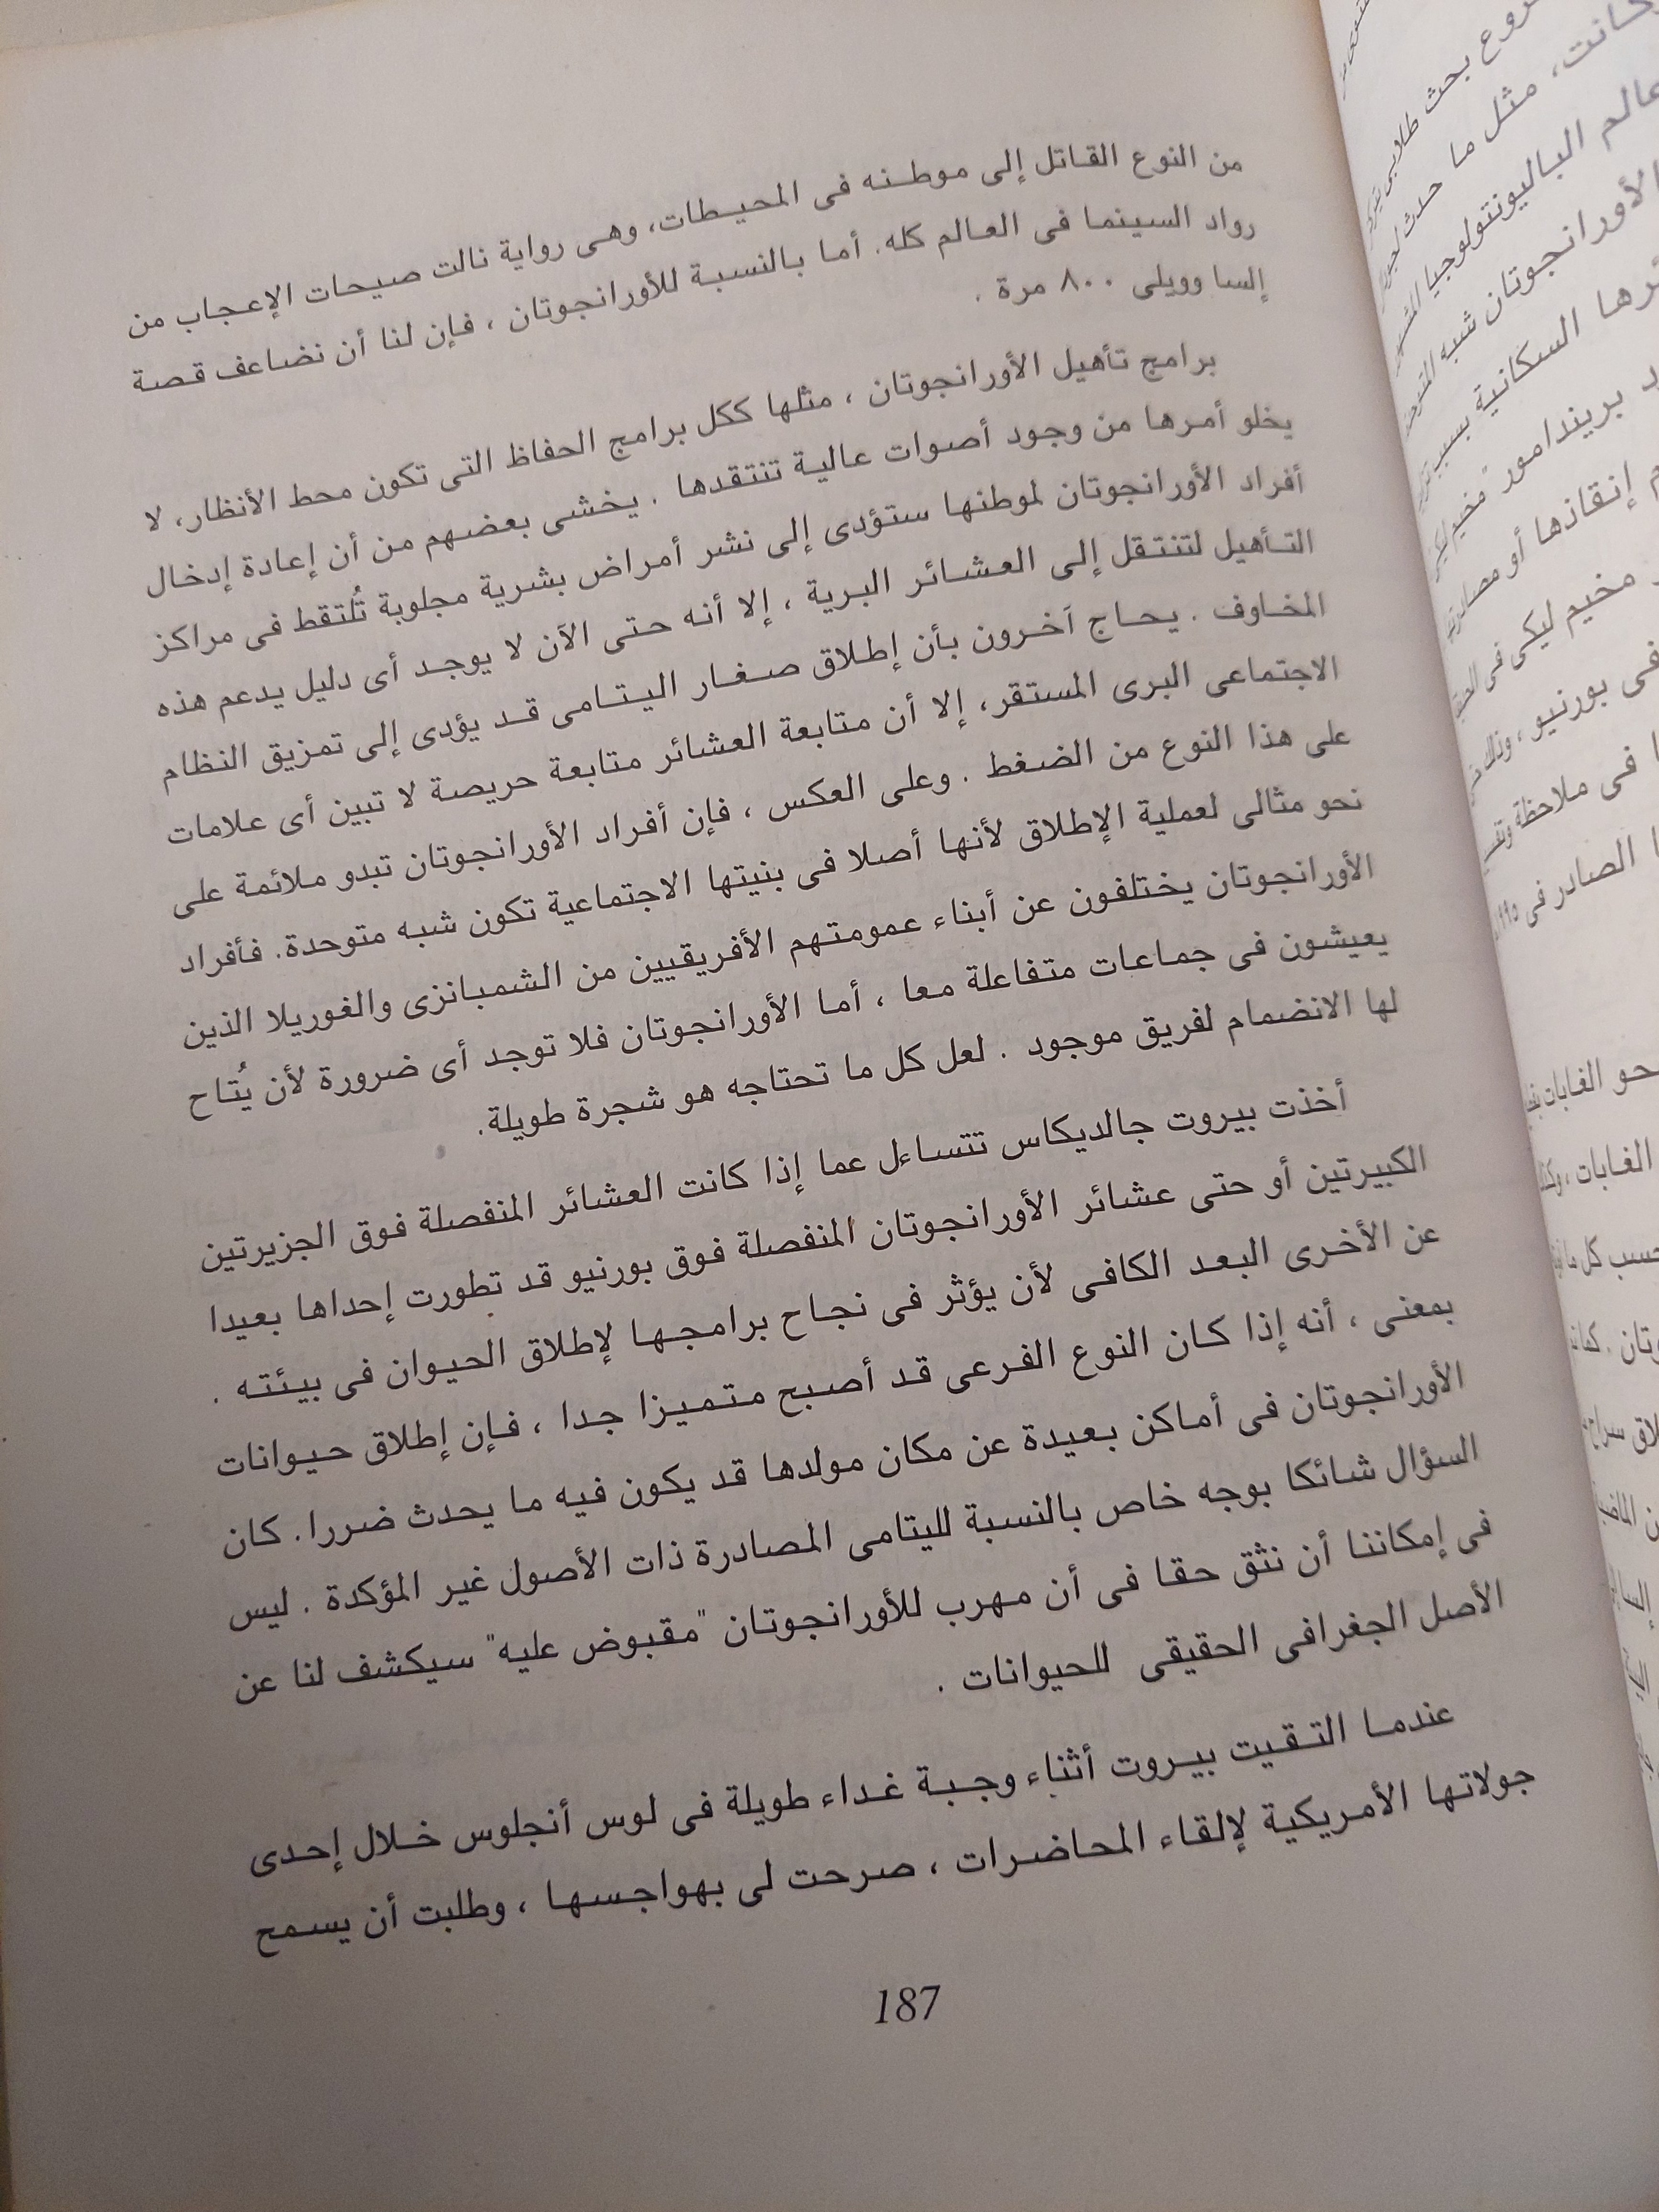 من النوع القاتل إلى موطنه فى المحيطات، وهى رواية نالت صيحات الإعجاب من
رواد السينما فى العالم كله. أما بالنسبة للأورانجوتان ، فإن لنا أن نضاعف قصة
إلسا وويلى ٨٠٠ مرة .
برامج تأهيل الأورانجوتان ، مثلها ككل برامج الحفاظ التى تكون محط الأنظار، لا
يخلو أمرها من وجود أصوات عالية تنتقدها . يخشى بعضهم من أن إعادة إدخال
أفراد الأورانجوتان لموطنها ستؤدى إلى نشر أمراض بشرية مجلوبة تُلتقط فى مراكز
التأهيل لتنتقل إلى العشائر البرية ، إلا أنه حتى الآن لا يوجد أى دليل يدعم هذه
المخاوف . يحاج آخرون بأن إطلاق صغار اليتامى قد يؤدى إلى تمزيق النظام
الاجتماعى البرى المستقر، إلا أن متابعة العشائر متابعة حريصة لا تبين أى علامات
على هذا النوع من الضغط . وعلى العكس ، فإن أفراد الأورانجوتان تبدو ملائمة على
نحو مثالى لعملية الإطلاق لأنها أصلا فى بنيتها الاجتماعية تكون شبه متوحدة. فأفراد
الأورانجوتان يختلفون عن أبناء عمومتهم الأفريقيين من الشمبانزى والغوريلا الذين
يعيشون فى جماعات متفاعلة معا ، أما الأورانجوتان فلا توجد أى ضرورة لأن يُتاح
لها الانضمام لفريق موجود . لعل كل ما تحتاجه هو شجرة طويلة.
أخذت بيروت جالديكاس تتساءل عما إذا كانت العشائر المنفصلة فوق الجزيرتين
الكبيرتين أو حتى عشائر الأورانجوتان المنفصلة فوق بورنيو قد تطورت إحداها بعيدا
عن الأخرى البعد الكافى لأن يؤثر فى نجاح برامجها لإطلاق الحيوان فى بيئته .
بمعنى ، أنه إذا كان النوع الفرعى قد أصبح متميزا جدا ، فإن إطلاق حيوانات
الأورانجوتان فى أماكن بعيدة عن مكان مولدها قد يكون فيه ما يحدث ضررا. كان
السؤال شائكا بوجه خاص بالنسبة لليتامى المصادرة ذات الأصول غير المؤكدة . ليس
فى إمكاننا أن نثق حقا فى أن مهرب للأورانجوتان "مقبوض عليه" سيكشف لنا عن
الأصل الجغرافى الحقيقى للحيوانات .
عندما التقيت بيروت أثناء وجبة غداء طويلة فى لوس أنجلوس خلال إحدى
جولاتها الأمريكية لإلقاء المحاضرات ، صرحت لى بهواجسها ، وطلبت أن يسمح
187
بحث طلابى
كانت، مثل ما حدث
عالم الباليونتولوجيا
الأورانجوتان شبه
السكانية بسبب
بريندامور مخيم
إنقاذها أو
مخيم ليكى فى
فى بورنيو ،
فى ملاحظة
الصادر فى ١٩٩٥
الغابات
الغابات ،
حسب كل ما